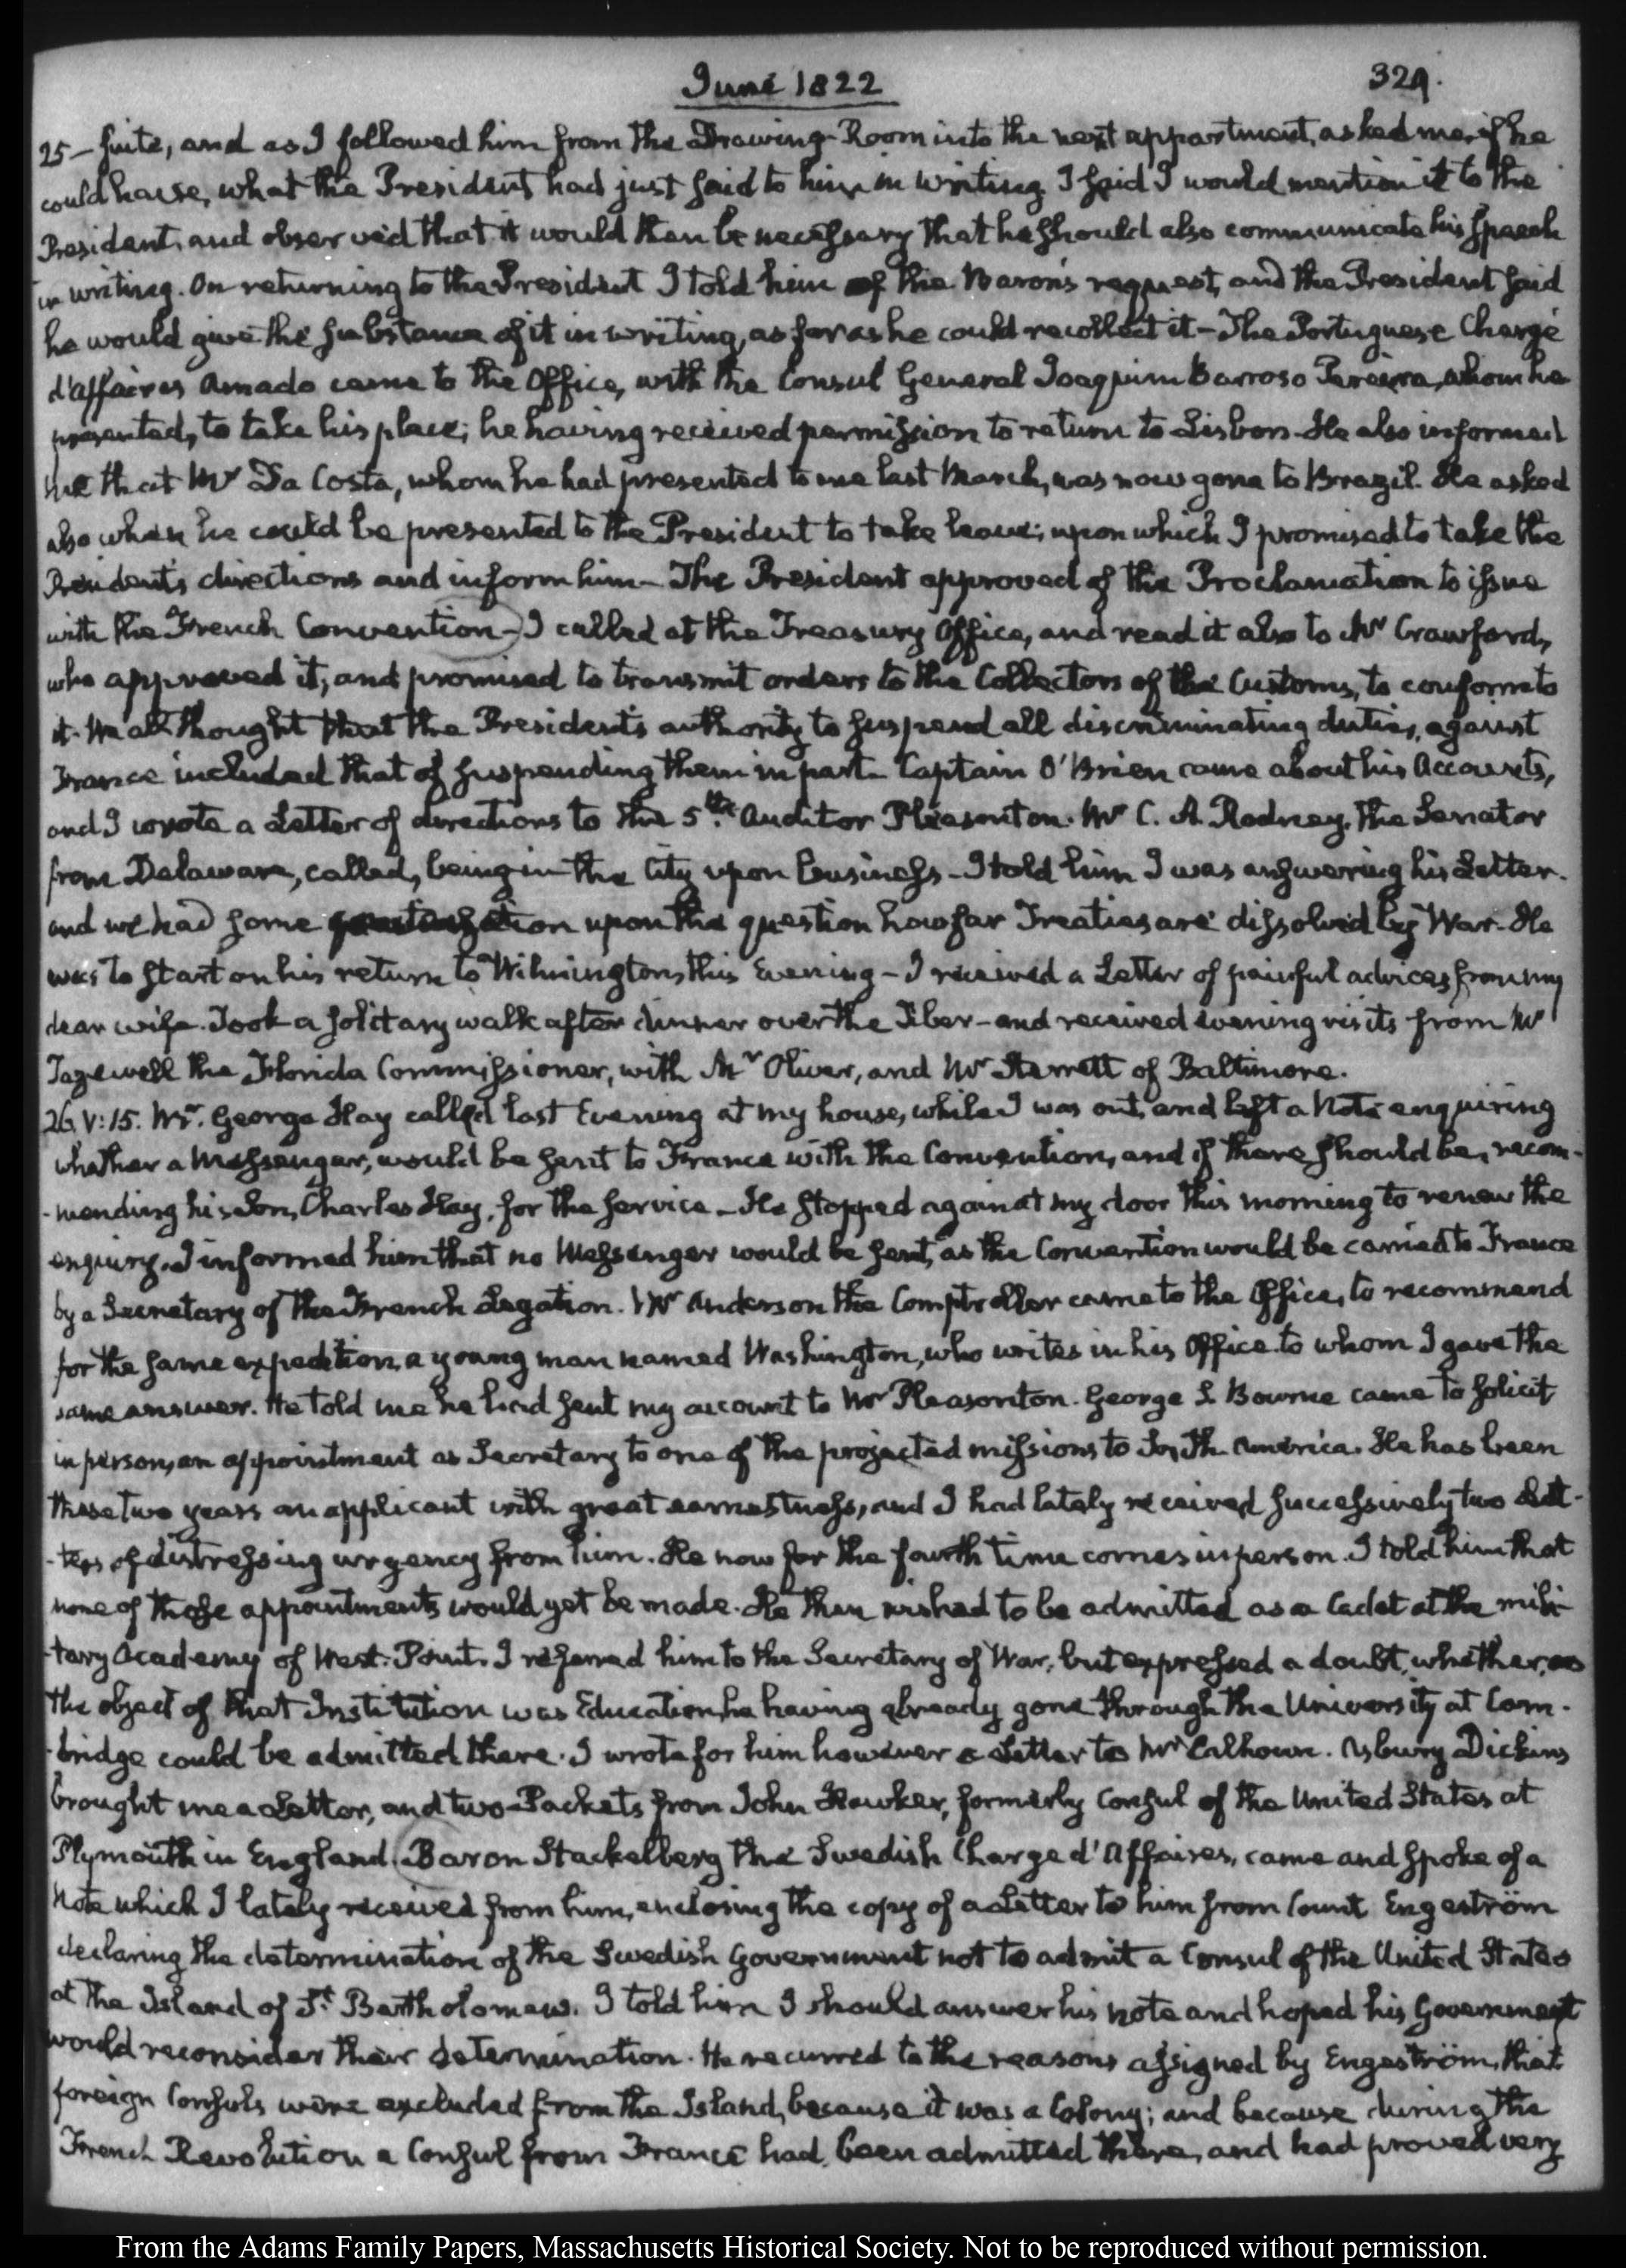 June 1822
329.
25 – suite, and as I followed him from the Drawing-Room into the next appartment, asked me, if he
could have, what the President had just said to him in writing. I said I would mention it to the
President, and observed that it would then be necessary that he should also communicate his Speech
in writing. On returning to the President I told him of the Baron's request, and the President said
he would give the substance of it in writing, as far as he could recollect it – The Portuguese Chargé
d'affaires Amado came to the Office, with the Consul General Joaquim Barroso Pereira, whom he
presented, to take his place; he having received permission to return to Lisbon. He also informed
me that Mr Da Costa, whom he had presented to me last March, was now gone to Brazil. He asked
also when he could be presented to the President to take leave; upon which I promised to take the
President's directions and inform him – The President approved of the Proclamation to issue
with the French Convention – I called at the Treasury Office, and read it also to Mr Crawford,
who approved it, and promised to transmit orders to the Collectors of the Customs, to conform to
it. We all thought that the President's authority to suspend all discriminating duties, against
France included that of suspending them in part – Captain O'Brien came about his Accounts,
and I wrote a Letter of directions to the 5th. Auditor Pleasonton. Mr C. A. Rodney, the Senator
from Delaware, called, being in the City upon business – I told him I was answering his Letter.
and we had some conversation upon the question how far Treaties are dissolved by War. He
was to start on his return to Wilmington, this Evening – I received a Letter of painful advices from my
dear wife. Took a solitary walk after dinner over the Tiber – and received evening visits from Mr
Tazewell the Florida Commissioner, with Mr Oliver, and Mr Sterrett of Baltimore.
26. V:15. Mr. George Hay called last Evening at my house, while I was out, and left a Note enquiring
whether a Messenger, would be sent to France with the Convention, and if there should be, recom-
-mending his Son, Charles Hay, for the service – He stopped again at my door this morning to renew the
enquiry. I informed him that no Messenger would be sent, as the Convention would be carried to France
by a Secretary of the French Legation. Mr Anderson the Comptroller came to the Office, to recommend
for the same expedition, a young man named Washington, who writes in his Office. to whom I gave the
same answer. He told me he had sent my account to Mr Pleasonton. George L Bourne came to solicit
in person, an appointment as Secretary to one of the projected missions to South America. He has been
these two years an applicant with great earnestness, and I had lately received successively two Let-
-ters of distressing urgency from him. He now for the fourth time comes in person. I told him that
none of those appointments would yet be made. He then wished to be admitted as a Cadet at the mili-
-tary Academy of West-Point. I referred him to the Secretary of War, but expressed a doubt, whether, as
the object of that Institution was Education, he having already gone through the University at Cam-
-bridge could be admitted there. I wrote for him however a Letter to Mr Calhoun. Asbury Dickins
brought me a Letter, and two Packets from John Hawker, formerly Consul of the United States at
Plymouth in England. Baron Stackelberg the Swedish Charge d'Affaires, came and spoke of a
Note which I lately received from him, enclosing the copy of a Letter to him from Count Engeström
declaring the determination of the Swedish Government not to admit a Consul of the United States
at the Island of St Bartholomew. I told him I should answer his note and hoped his Government
would reconsider their determination. He recurred to the reasons assigned by Engeström, that
foreign Consuls were excluded from the Island, because it was a Colony; and because during the
French Revolution a Consul from France had been admitted there, and had proved very
From the Adams Family Papers, Massachusetts Historical Society. Not to be reproduced without permission.